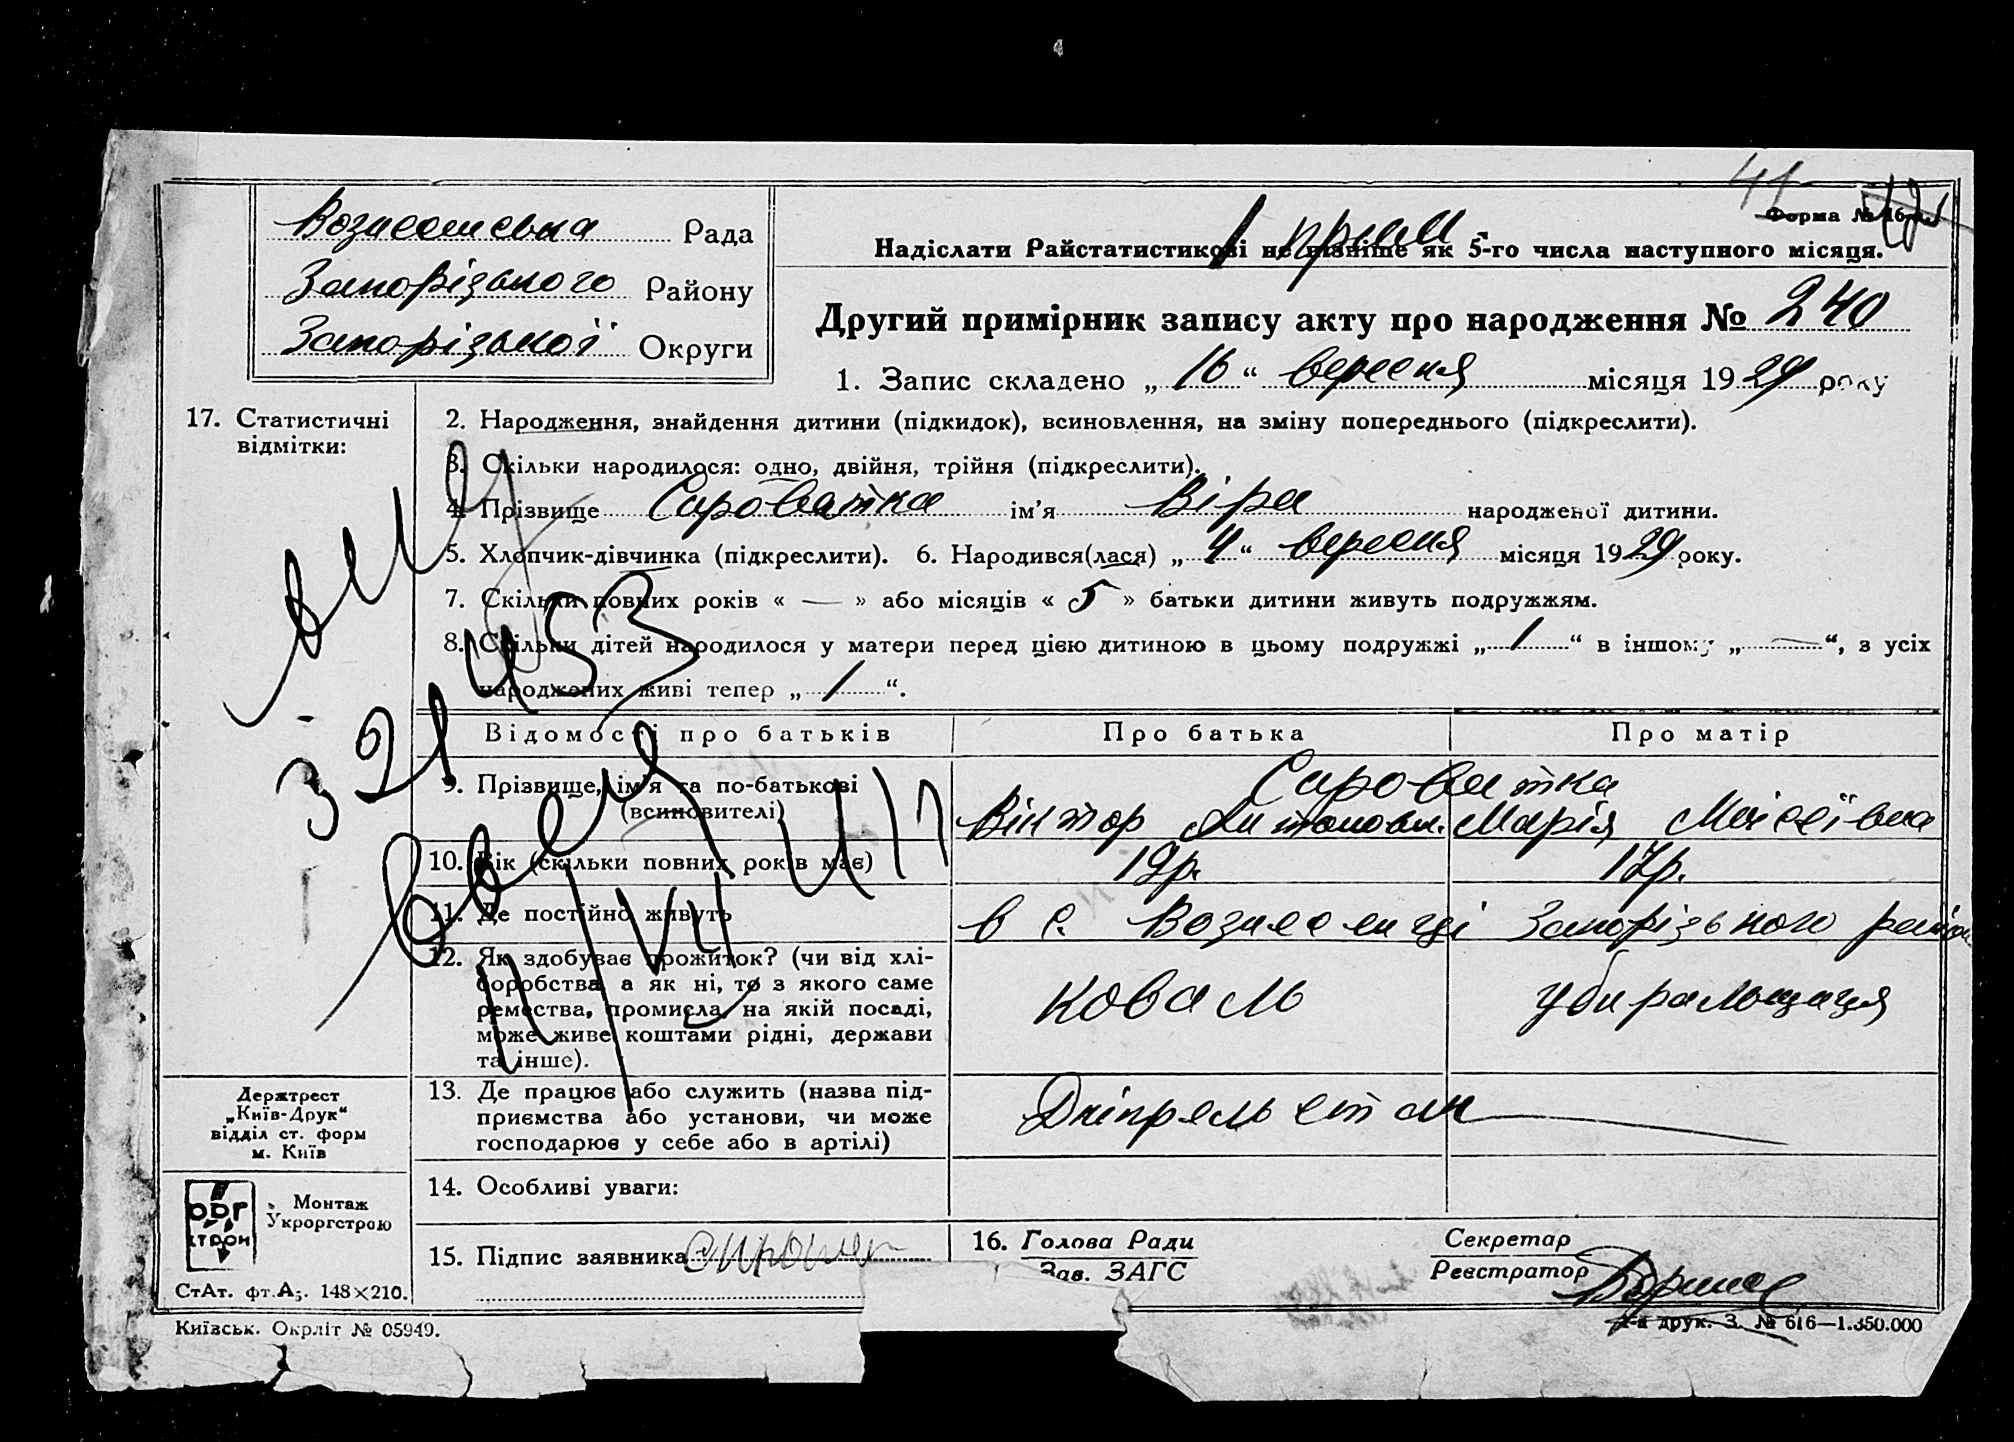 41
Форма № 16-а.
1 прим.
Вознесенська Рада
Запорізького Району
Запорізької Округи
Надіслати Райстатистикові не пізніше як 5-го числа наступного місяця.
Другий примірник запису акту про народження № 240
1. Запис складено „16“ вересня місяця 1929 року
17. Статистичні
відмітки:
2. Народження, знайдення дитини (підкидок), всиновлення, на зміну попереднього (підкреслити).
3. Скільки народилося: одно, двійня, трійня (підкреслити).
4. Прізвище Сироватка ім'я Віра народженої дитини.
5. Хлопчик-дівчинка (підкреслити). 6. Народився(лася) „4“ вересня місяця 1929 року.
7. Скільки повних років « — » або місяців « 5 » батьки дитини живуть подружжям.
8. Скільки дітей народилося у матери перед цією дитиною в цьому подружжі „1“ в іншому „—“, з усіх
народжених живі тепер „1“.
321453
Відомості про батьків Про батька Про матір
9. Прізвище, ім'я та по-батькові
(всиновителі)
Сироватка
Віктор Антонов. Марія Мойсеївна
10. Вік (скільки повних років має) 19р. 17р.
11. Де постійно живуть в с. Вознесенці Запорізького району
12. Як здобуває прожиток? (чи від хлі-
боробства, а як ні, то з якого саме
ремества, промисла, на якій посаді,
може живе коштами рідні, держави
та інше).
коваль убиральщиця
13. Де працює або служить (назва під-
приємства або установи, чи може
господарює у себе або в артілі)
Дніпрельстан
14. Особливі уваги:
15. Підпис заявника
16. Голова Ради
Зав. ЗАГС
Секретар
Реєстратор
Держтрест
„Київ-Друк“
відділ ст. форм
м. Київ
Монтаж
Укроргстрою
СтАт. фт. А5. 148×210.
Київськ. Окрліт № 05949.
друк. З. № 616—1.350.000